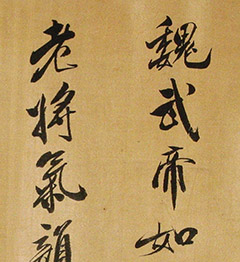 魏武帝如
老將氣韻